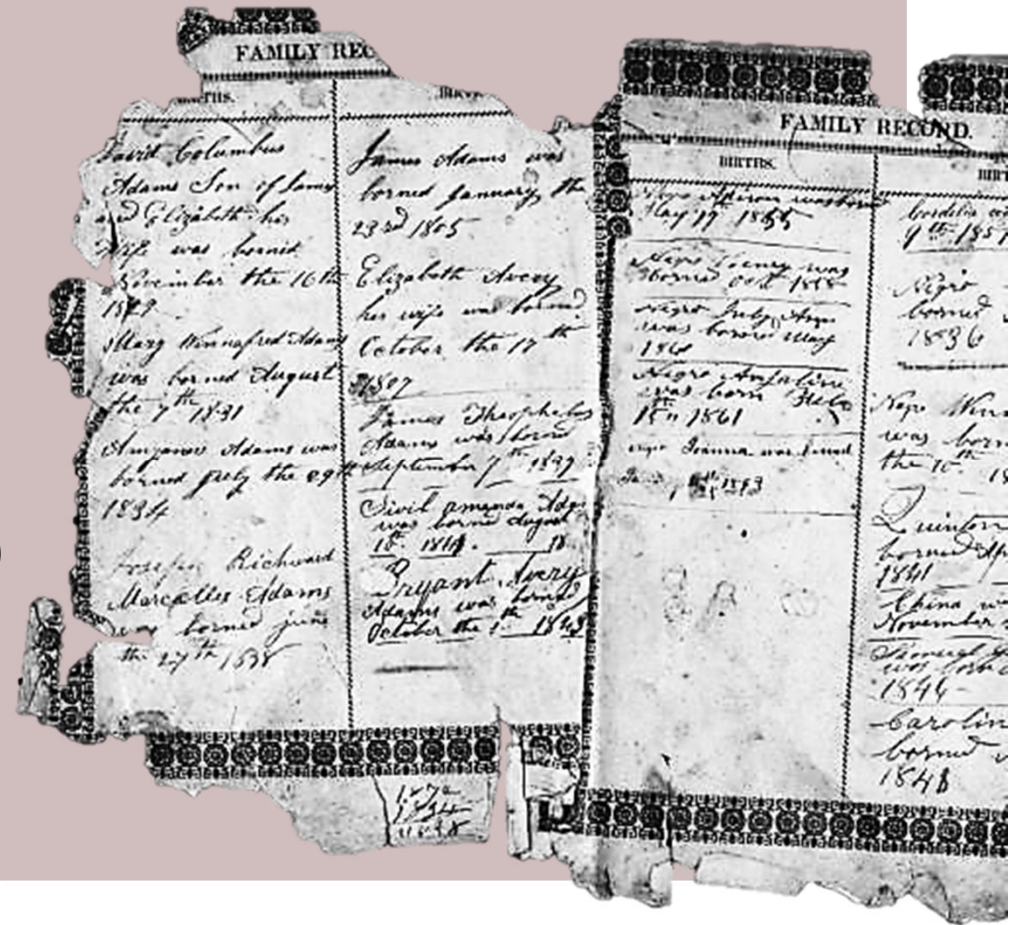 FAMILY REC
BIRTHS.
David Columbus
Adams Son of James
and Elizabeth his
Wife was borned
November the 16th
Mary Winnafred Adams
was borned August
the 7th 1831
Adams was
borned July the 29th
1834
Joseph Richward
Marcellus Adams
was borned june
the 27th 1838
BIRT
James Adams was
borned January the
23rd 1805
Elizabeth Avery
his wife was borned
October the 17th
1807
James Theophelus
Adams was borned
September 7th
Civil amanda Ada
was borned August
18th
Bryant Avery
Adams was borned
October the 1st
1834
FAMILY RECORD.
BIRTHS.
Negro was borned
May 17th
Negro was
borned oct
Negro July Ann
was borned May
Negro
was born Feb
1861
negro Joanna was borned
BIRT
Cordelia
9th 185
Negro
borned
1836
Negro
was born
the 10th 18
Quinton
borned Ap
1841
China wa
November
was born
1844
Carolin
borned